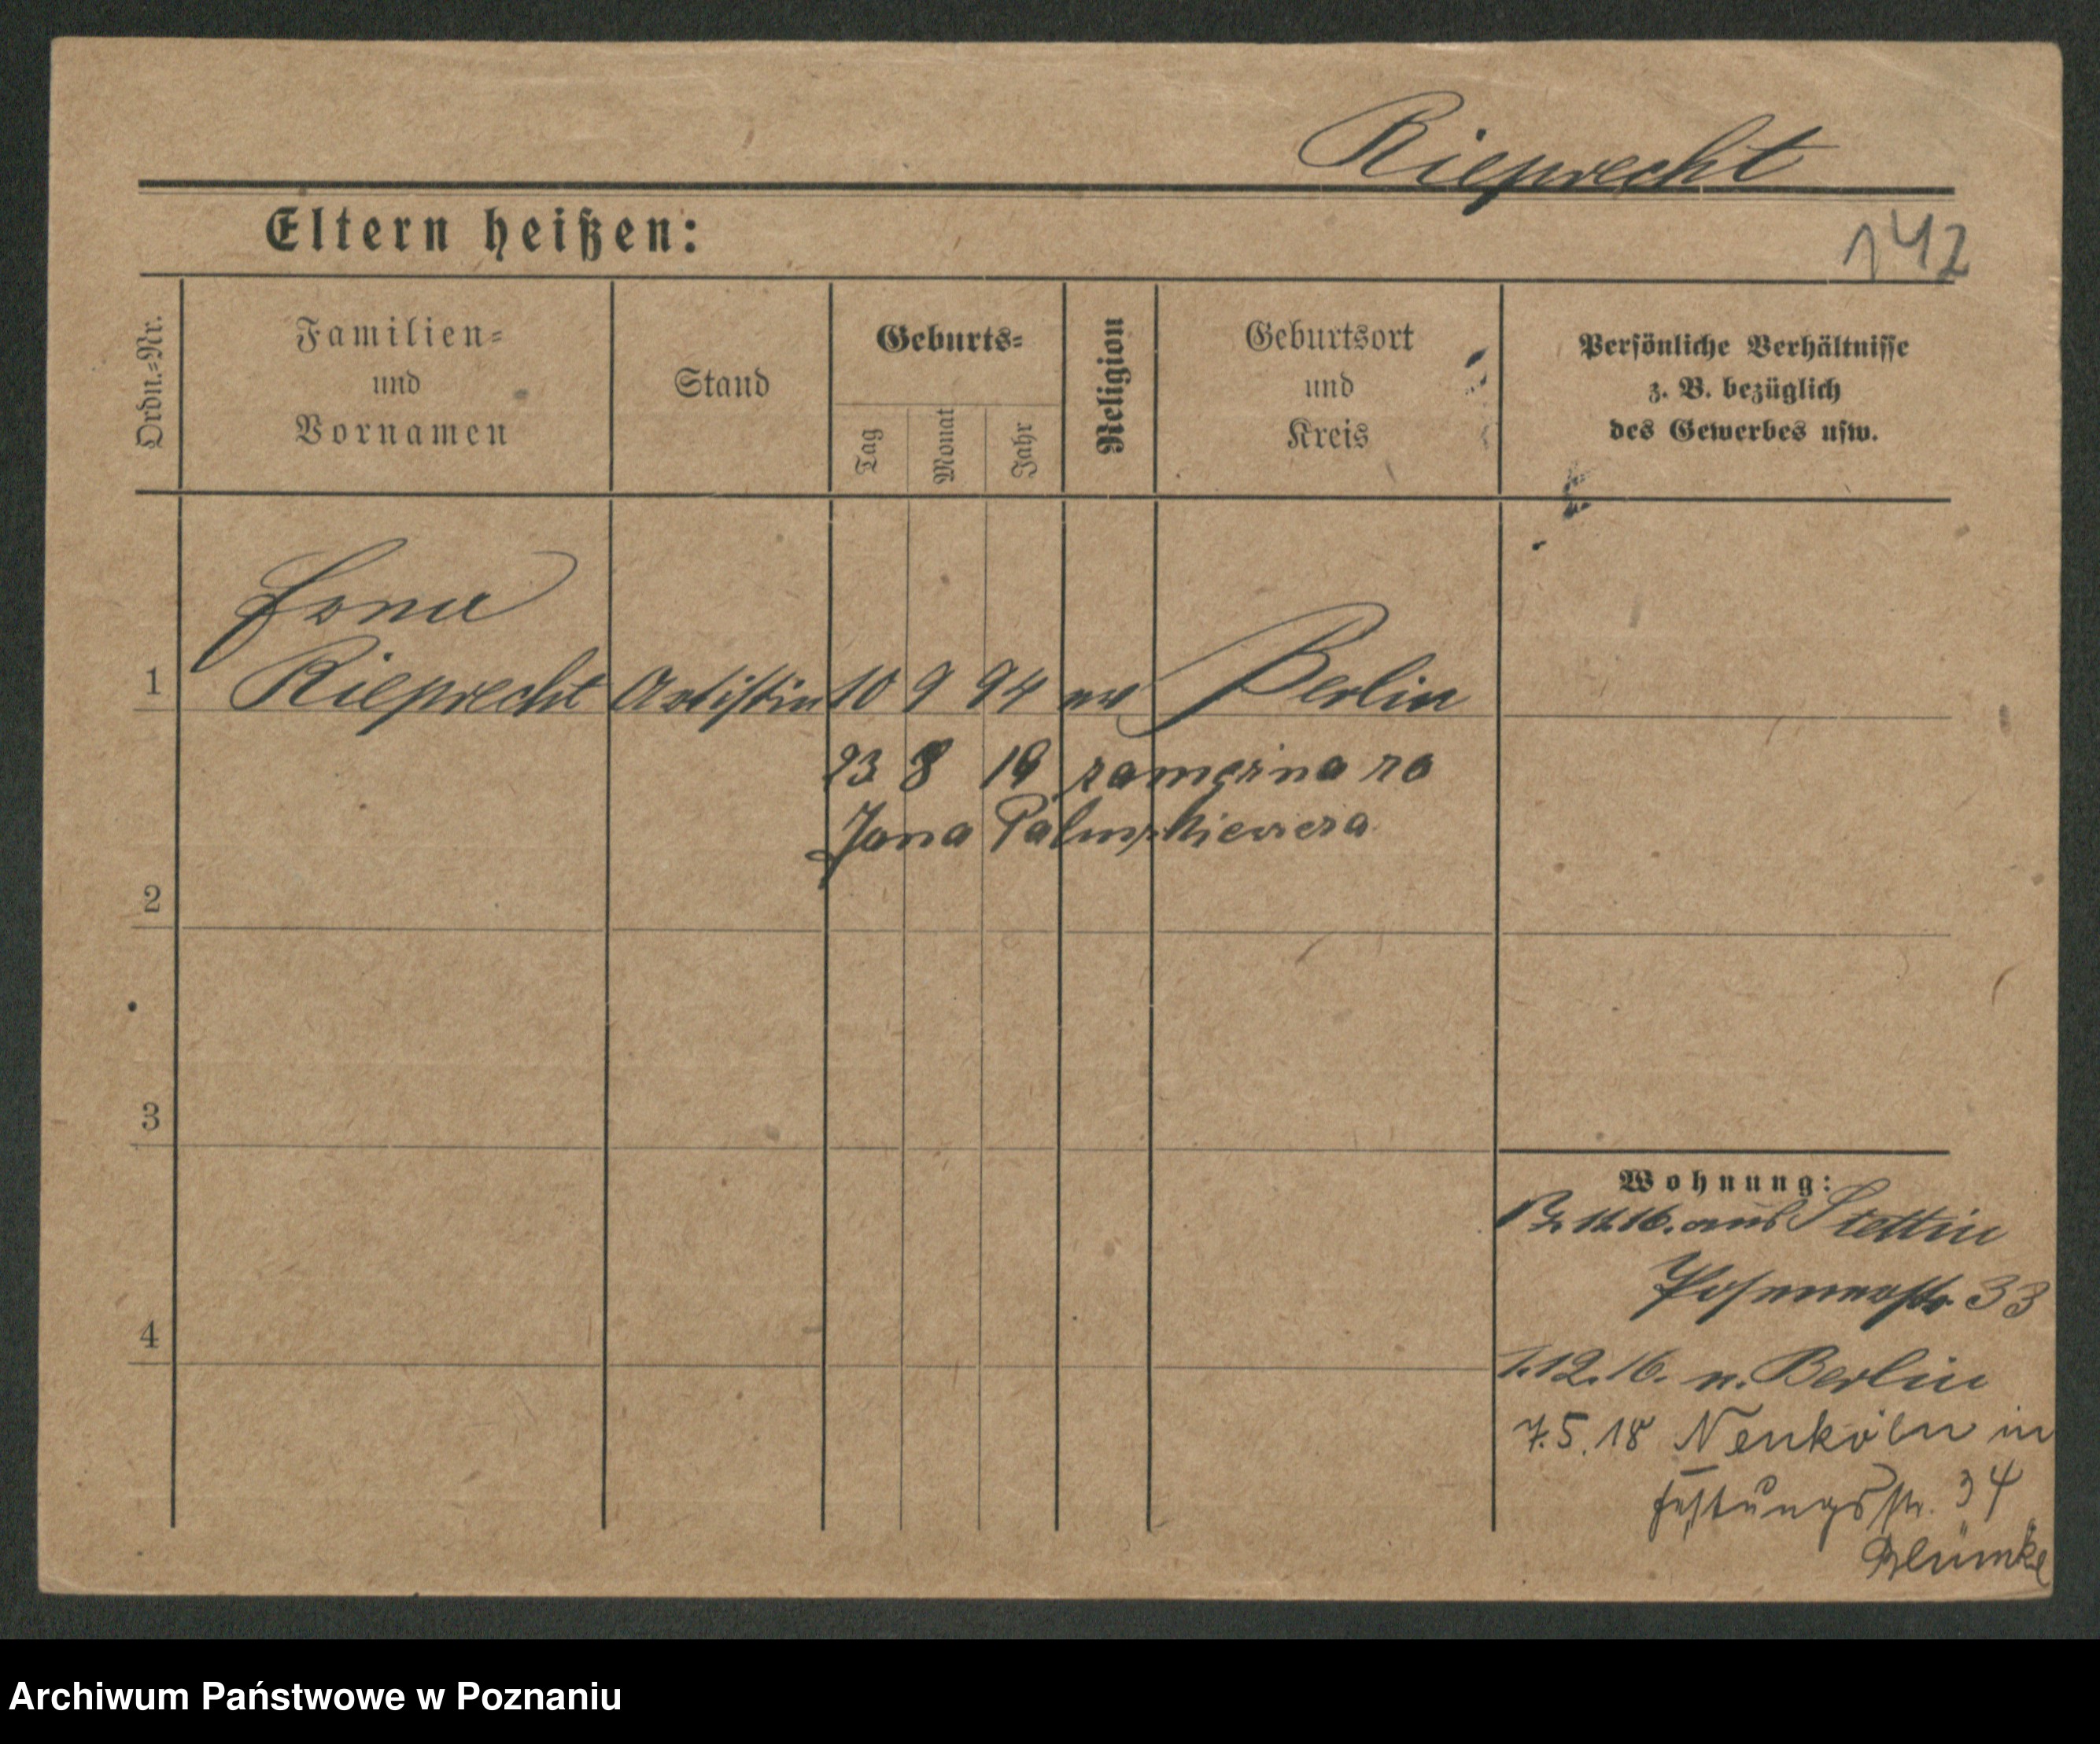 Rieprecht
142
Eltern heißen:
Ordn.-Nr.
Familien- und Vornamen
Stand
Geburts-
Tag
Monat
Jahr
Religion
Geburtsort und Kreis
Persönliche Verhältnisse z. B. bezüglich des Gewerbes usw.
1
Rieprecht Artistin 10 9 94 ev Berlin
23 8 19
Jana
2
3
4
Wohnung:
16. aus Stettin
33
1.12.16. n. Berlin
7.5.18 Neuköln in
Festungsstr. 34
Blümke
Archiwum Państwowe w Poznaniu